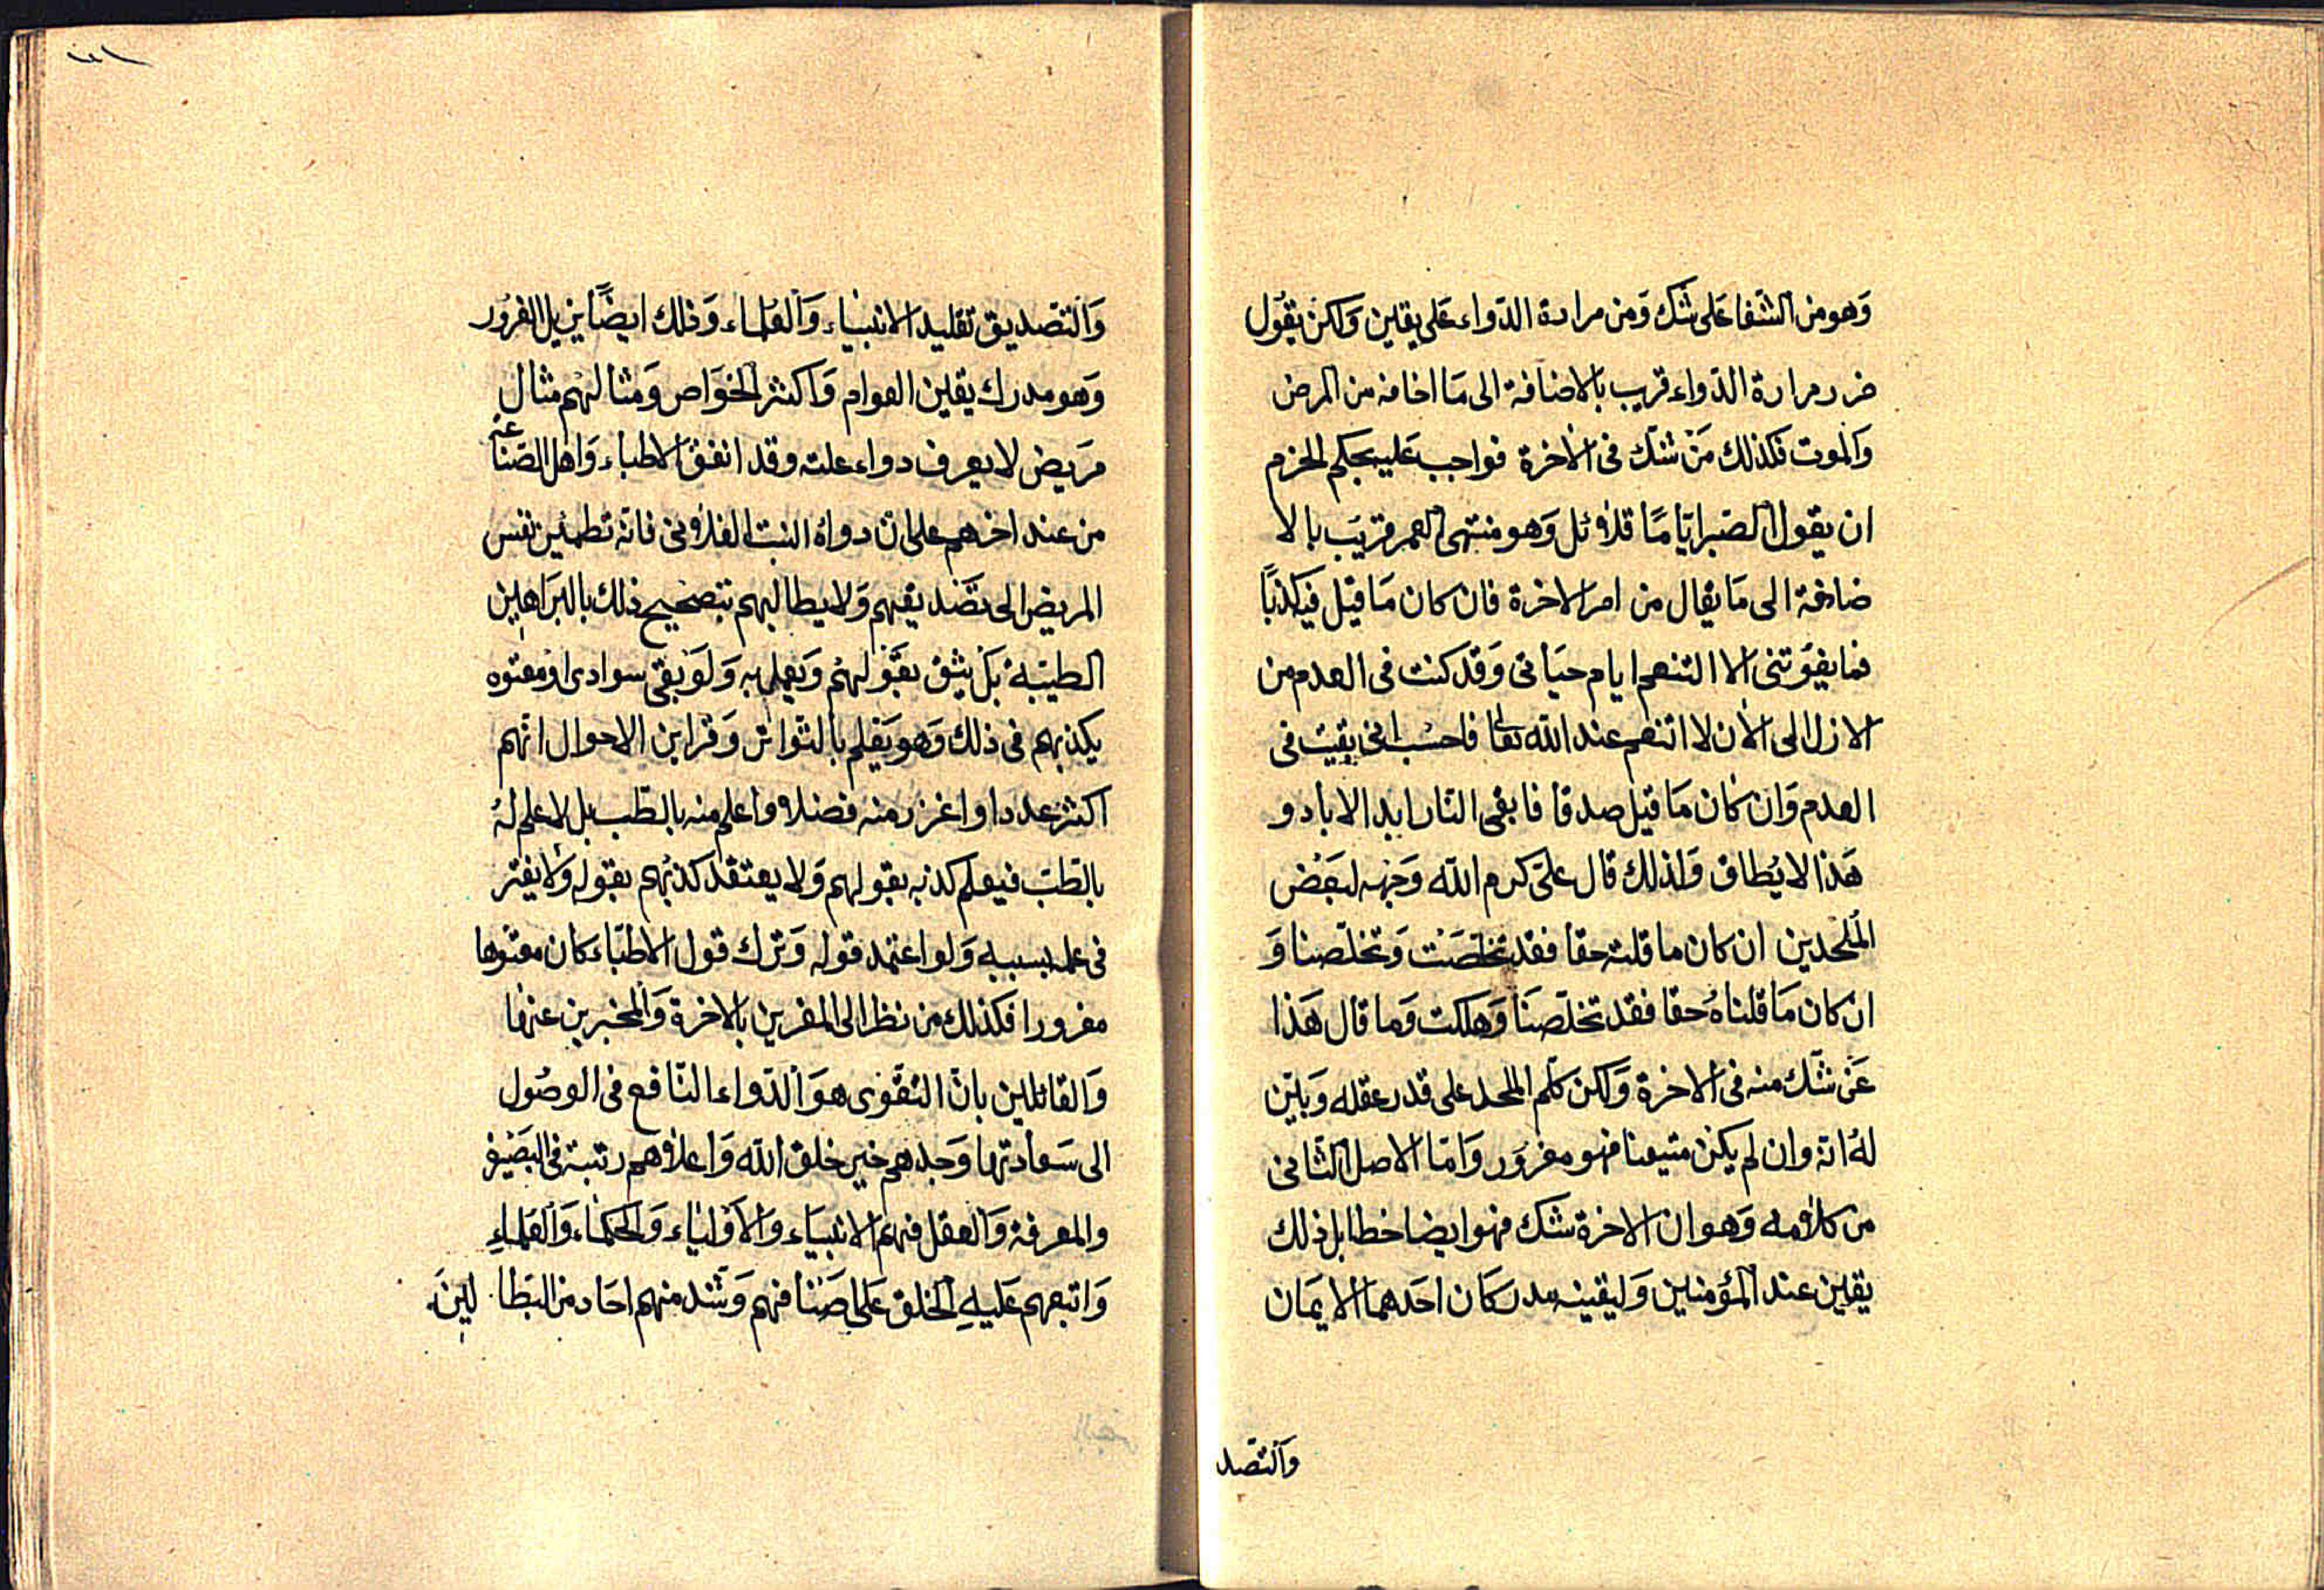 وَهو من الشّفا عَلى شَك وَمن مرارة الدّواء عَلى يقين وَلكن يقُول
ضرر مرارة الدّواء قريب بالاضافة الى مَا اخافه من المرض
وَالموت فكذلك مَنْ شَكّ فى الاخرة فواجب عَليه بحكم الحزم
ان يقول الصّبر ايّامًا قلائل وَهو منتهى العمر قريَب بالا
ضافة الى مَا يقال من امر الاخرة فان كان مَا قيل فيه كذبًا
فما يفوَتنى الا التنعم ايام حيَاتى وَقدَ كنت فى العدم من
الازل الى الاٰن لا اتنعم عند الله تعا فاحسَب انى بقيت فى
العدم وَان كَان مَا قيل صدقا فابقى النّار ابد الاباد و
هَذا لا يُطاق وَلذلك قال علىّ كرم الله وَجهه لبَعض
المُلحدين ان كان ما قلته حقا فقد تخلّصَت وَتخلّصنا وَ
ان كان مَا قلناهُ حقا فقد تخلّصَنَا وَهلكت وَما قال هَذا
عَن شَك منه فى الاخرة وَلكن كلّم الملحد على قدر عقله وَبيّن
لهُ انه وان لم يكن متيقنا فهو مغرَور وَامّا الاصل الثّانى
من كلامه وَهو ان الاخرة شك فهو ايضا خطا بل ذلك
يقين عند المؤمنين وَليقينه مدركان احَدهما الايمَان
وَالتصد
وَالتصديق تقليد الانبياء وَالعُلماء وَذلك ايضًا يزيل الغرُور
وَهو مدرك يقين العوام وَاكثر الخوَاص وَمثالهُم مثال
مرَيض لا يعرف دواء علته وقد اتفق الاطباء وَاهل الصّنا
عة
من عند اخرهم على انّ دواه النبت الفلانى فانّه تطمئن نفس
المريض الى تصَديقهم وَلا يطالبهم بتصحيح ذلك بالبرَاهين
الطبيّة بَل يثق بقَولهُم وَيعمل به وَلوَ بقى سوادى او معتوه
يكذبهم فى ذلك وَهو يَعلم بالتّواتر وَقراين الاحوال انّهم
اكثر عددا واغزر منه فضلا واعلم منه بالطّب بل لا علم لهُ
بالطّبّ فيعلم كذبه بقولهم وَلا يعتقدَ كذبُهم بقوله وَلا يغتر
فى علمه بسببه وَلو اعتمد قوله وَترك قول الاطبّاء كان معتوها
مغرورا فكذلك من نظر الى المقرين بالاخرة وَالمخبرين عنها
وَالقائلين بانّ التقوى هوَ الدّواء النّافع فى الوصُول
الى سَعادتها وَجدهم خير خلق الله وَاعلاهم رتبة فى البصَير
والمعرفة وَالعقل فهم الانبيَاء والاَوليَاء وَالحكمَاء وَالعلماء
وَاتبعهم عَليهِ الخلق عَلى اصَنافهم وَشذ منهم احَاد من البَطا لينَ